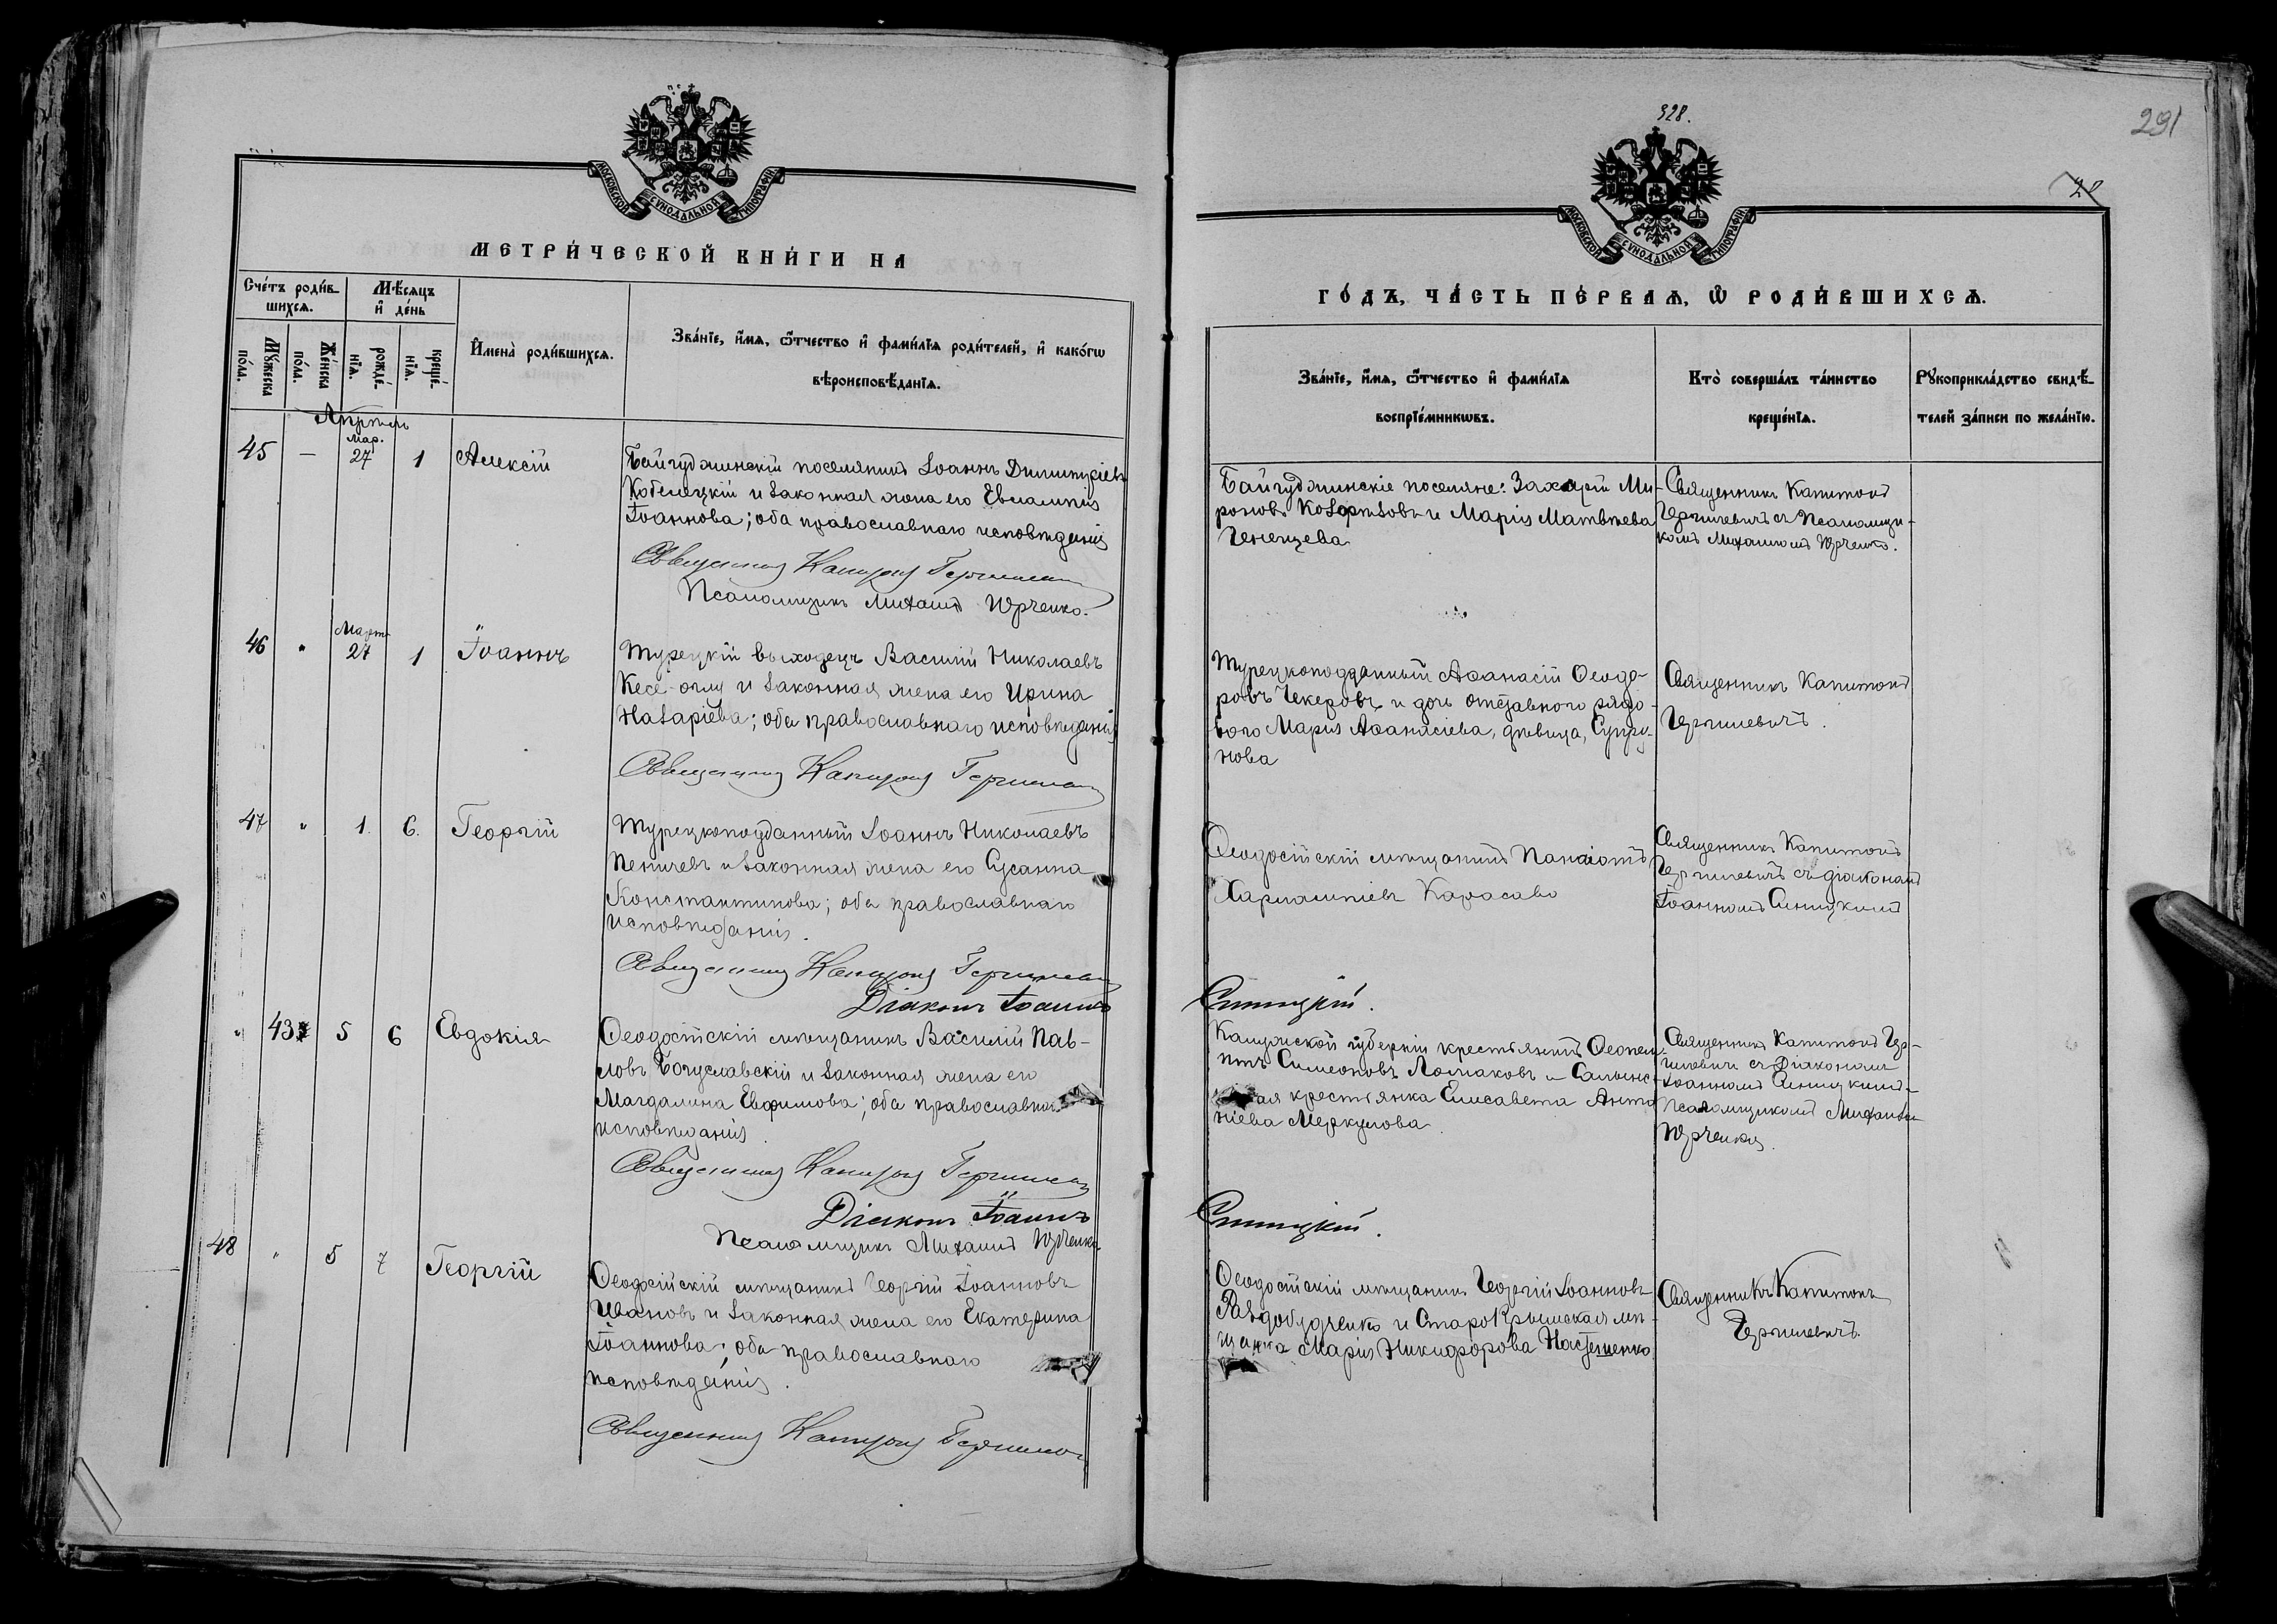 МОСКОВСКОЙ СУНОДАЛЬНОЙ ТИПОГРАФІИ
МЕТРИ́ЧЕСКОЙ КНИ́ГИ НА
Сче́тъ роди́в-
шихсѧ.
Мѣ́сѧцъ
и҆ де́нь
Мꙋ́жеска
по́ла.
Же́нска
по́ла.
рожде́-
нїѧ.
креще́-
нїѧ.
И҆мена̀ роди́вшихсѧ.
Зва́нїе, и҆́мѧ, ѻ҆́тчество и҆ фамѝлїѧ роди́телей, и҆ како́гѡ
вѣроисповѣ́данїѧ.
Апрѣль
45 — Мар. 27 1 Алексій
Байгуджинскій поселянинъ Іоаннъ Димитріевъ
Кобелецкій и законная жена его Евлампія
Іоаннова; оба православнаго исповѣданія
Священникъ Капитонъ Гергилевичъ
Псаломщикъ Михаилъ Юрченко.
46 " Мартъ 27 1 Іоаннъ
Турецкій выходецъ Василій Николаевъ
Кесе-оглу и законная жена его Ирина
Назаріева; оба православнаго исповѣданія
Священникъ Капитонъ Гергилевичъ
47 " 1. 6. Георгій
Турецкоподданный Іоаннъ Николаевъ
Пеничевъ и законная жена его Сусанна
Константинова; оба православнаго
исповѣданія.
Священникъ Капитонъ Гергилевичъ
Діаконъ Іоаннъ
" 43 5 6 Евдокія
Ѳеодосійскій мѣщанинъ Василій Пав-
ловъ Богуславскій и законная жена его
Магдалина Евфимова; оба православнаго
исповѣданія.
Священникъ Капитонъ Гергилевичъ
Діаконъ Іоаннъ
Псаломщикъ Михаилъ Юрченко
48 " 5 7 Георгій
Ѳеодосійскій мѣщанинъ Георгій Іоанновъ
Ивановъ и законная жена его Екатерина
Іоаннова; оба православнаго
исповѣданія.
Священникъ Капитонъ Гергилевичъ
328.
291
22
МОСКОВСКОЙ СУНОДАЛЬНОЙ ТИПОГРАФІИ
ГО́ДЪ, ЧА́СТЬ ПЕ́РВАѦ, Ѡ҆ РОДИ́ВШИХСѦ.
Зва́нїе, и҆́мѧ, ѻ҆́тчество и҆ фамѝлїѧ
воспрїе́мникѡвъ.
Кто̀ соверша́лъ та́инство
креще́нїѧ.
Рꙋкоприкла́дство свидѣ́-
телей за́писи по жела́нїю.
Байгуджинскіе поселяне: Захарій Ми-
роновъ Козорѣзовъ и Марія Матвѣева
Ченецева
Священникъ Капитонъ
Гергилевичъ съ псаломщи-
комъ Михаиломъ Юрченко.
Турецкоподданный Аѳанасій Ѳеодо-
ровъ Чекеровъ и дочь отставного рядо-
вого Марія Аѳанасіева, дѣвица, Супру-
нова
Священникъ Капитонъ
Гергилевичъ.
Ѳеодосійскій мѣщанинъ Панаіотъ
Харлампіевъ Карасаво
Священникъ Капитонъ
Гергилевичъ съ діакономъ
Іоанномъ Синицкимъ
Синицкій.
Калужской губерніи крестьянинъ Ѳеопем-
птъ Симеоновъ Ломаковъ и
крестьянка Елисавета Анто
ніева Меркулова.
Священникъ Капитонъ Гер-
гилевичъ съ Діакономъ
Іоанномъ Синицкимъ-
псаломщикомъ Михаиломъ
Юрченко.
Синицкій.
Ѳеодосійскій мѣщанинъ Георгій Іоанновъ
Раздобудченко и Старокрымская мѣ-
щанка Марія Никифорова Настешенко
Священникъ Капитонъ
Гергилевичъ.